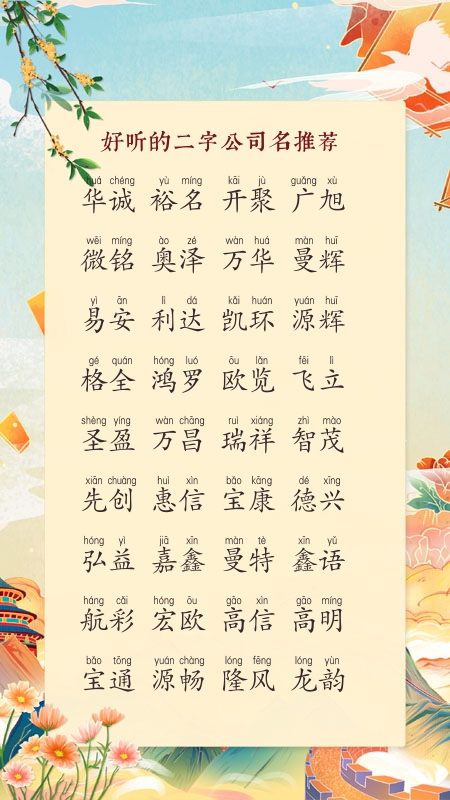 好听的二字公司名推荐
huá chéng yù míng kāi jù guǎng xù
华诚 裕名 开聚 广旭
wēi míng ào zé wàn huá màn huī
微铭 奥泽 万华 曼辉
yì ān lì dá kǎi huán yuán huī
易安 利达 凯环 源辉
gé quán hóng luó ōu lǎn fēi lì
格全 鸿罗 欧览 飞立
shèng yíng wàn chāng ruì xiáng zhì mào
圣盈 万昌 瑞祥 智茂
xiān chuàng huì xìn bǎo kāng dé xīng
先创 惠信 宝康 德兴
hóng yì jiā xīn màn tè xīn yǔ
弘益 嘉鑫 曼特 鑫语
háng cǎi hóng ōu gāo xìn gāo míng
航彩 宏欧 高信 高明
bǎo tōng yuán chàng lóng fēng lóng yùn
宝通 源畅 隆风 龙韵